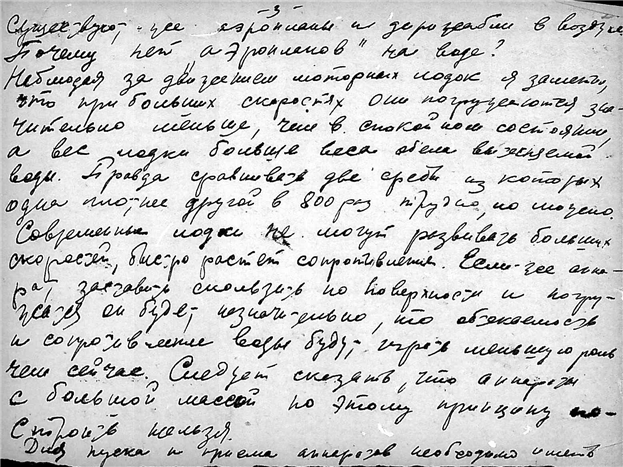 -3-
Существуют же аэропланы и дирижабли в воздухе.
Почему нет "аэропланов" на воде?
Наблюдая за движением моторных лодок я заметил,
что при больших скоростях они погружаются зна-
чительно меньше, чем в спокойном состоянии,
а вес лодки больше веса объема вытесняемой
воды. Правда сравнивать две среды из которых
одна плотнее другой в 800 раз трудно, но можно.
Современные лодки не могут развивать больших
скоростей, быстро растет сопротивления. Если же аппа-
рат заставить скользить по поверхности и погру-
жатся он будет незначительно, то обтекаемость
и сопротивление воды будут играть меньшую роль
чем сейчас. Следует сказать, что аппараты
с большой массой по этому принципу по-
строить нельзя.
Для пуска и приема аппаратов необходимо иметь